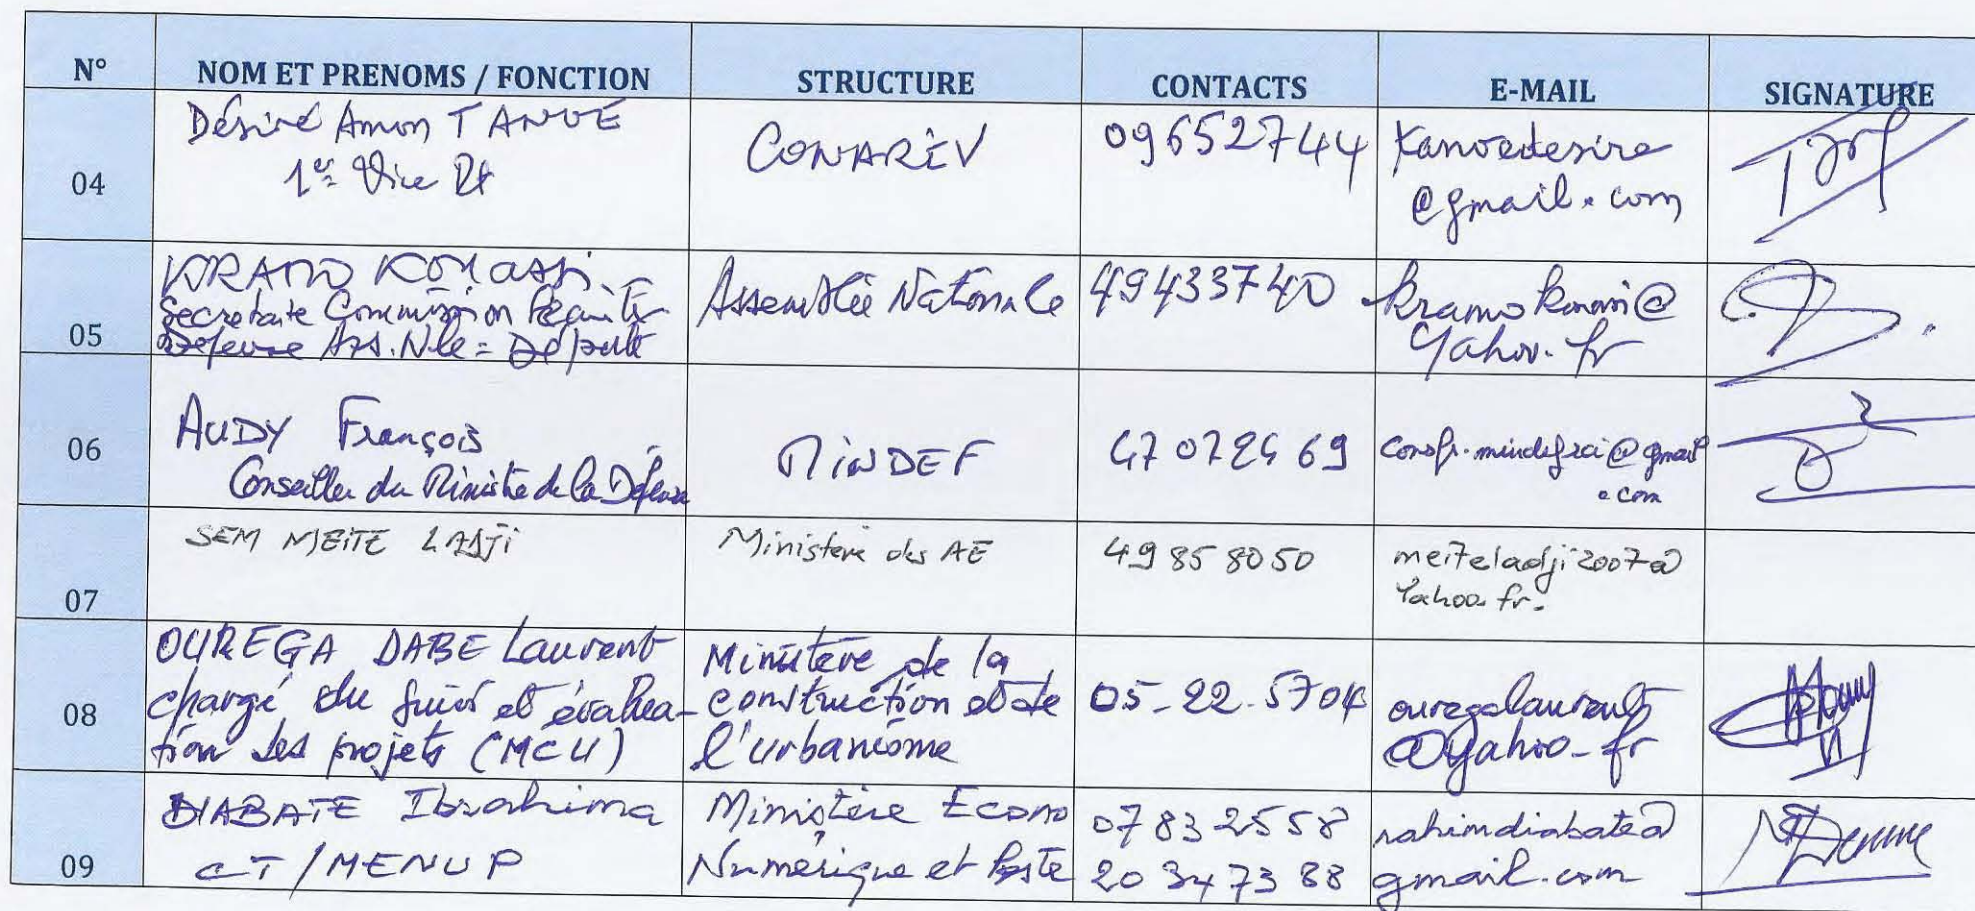 N° NOM ET PRENOMS / FONCTION STRUCTURE CONTACTS E-MAIL SIGNATURE
04
Désiré Amon TANOE
1er Vice Pt
CONARIV
09652744
tanoedesire
@gmail.com
05
KRAMO KOUASSI
Secretaire Commission Sécurité
Défense Ass.Nle = Député
Assemblée Nationale
49433740
kramokouassi@
Yahoo.fr
06
AUDY François
Conseiller du Ministre de la Défense
MINDEF
47 07 24 69
@gmail
.com
07
SEM MEITE LADJI
Ministere des AE
49 85 80 50
meiteladji2007@
Yahoo.fr.
08
OUREGA DABE Laurent
chargé du suivi et évalua-
tion des projets (MCU)
Ministere de la
construction et de
l'urbanisme
05-22-5704
ouregalaurent
@yahoo-fr
09
DIABATE Ibrahima
CT/MENUP
Ministère Econo
Numérique et Poste
07832558
20 34 73 88
rahimdiabate@
gmail.com